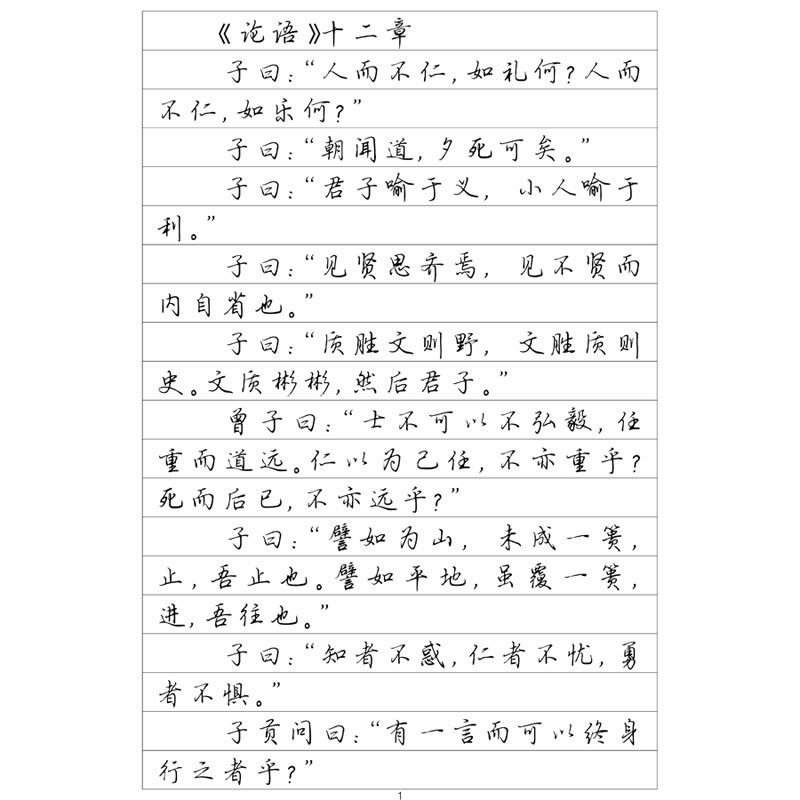 《论语》十二章
子曰：“人而不仁，如礼何？人而
不仁，如乐何？”
子曰：“朝闻道，夕死可矣。”
子曰：“君子喻于义， 小人喻于
利。”
子曰：“见贤思齐焉， 见不贤而
内自省也。”
子曰：“质胜文则野， 文胜质则
史。文质彬彬，然后君子。”
曾子曰：“士不可以不弘毅，任
重而道远。仁以为己任，不亦重乎？
死而后已，不亦远乎？”
子曰：“譬如为山， 未成一篑，
止，吾止也。譬如平地，虽覆一篑，
进，吾往也。”
子曰：“知者不惑，仁者不忧，勇
者不惧。”
子贡问曰：“有一言而可以终身
行之者乎？”
1